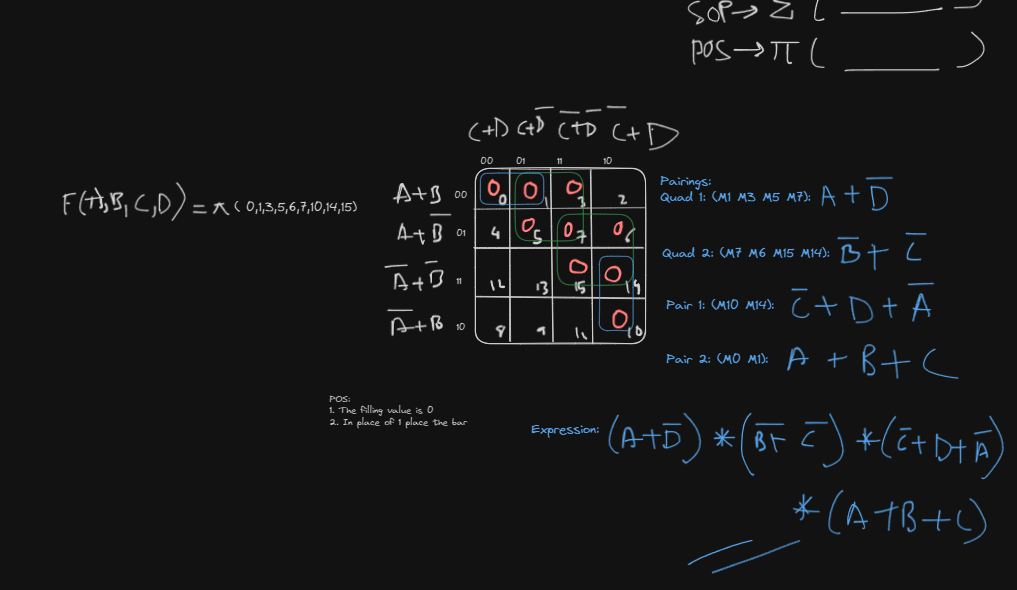 SOP→ Σ ( ______ )
POS→ π ( ______ )
C+D C+D̅ C̅+D̅ C̅+D
00 01 11 10
F(A,B,C,D) = π ( 0,1,3,5,6,7,10,14,15)
A+B 00 0 0 0 1 0 3 2
A+B̅ 01 4 0 5 0 7 0 6
A̅+B̅ 11 12 13 0 15 0 14
A̅+B 10 8 9 11 0 10
Pairings:
Quad 1: (M1 M3 M5 M7): A + D̅
Quad 2: (M7 M6 M15 M14): B̅ + C̅
Pair 1: (M10 M14): C̅ + D + A̅
Pair 2: (M0 M1): A + B + C
POS:
1. The filling value is 0
2. In place of 1 place the bar
Expression: (A+D̅) * (B̅+ C̅) * (C̅+D+A̅)
* (A+B+C)